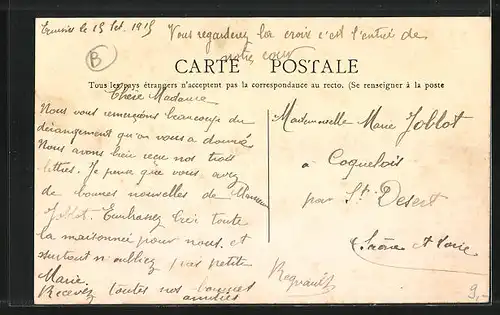 le 15 1915
Vous regarderez la croix c'est l'entrée de
notre cour
B
CARTE POSTALE
Tous les pays étrangers n'acceptent pas la correspondance au recto. (Se renseigner à la poste
Chère Madame
Nous vous remercions beaucoup du
dérangement qu'on vous a donné
Nous avons bien reçue nos trois
lettres. Je pense que vous avez
de bonnes nouvelles de Monsieur
Joblot. Embrassez bien toute
la maisonnée pour nous et
surtout n'oubliez pas petite
Marie.
Recevez toutes nos bonnes
amitiés
Mademoiselle Marie Joblot
a Coquelois
par St. Desert
Saône et Loire
9.-